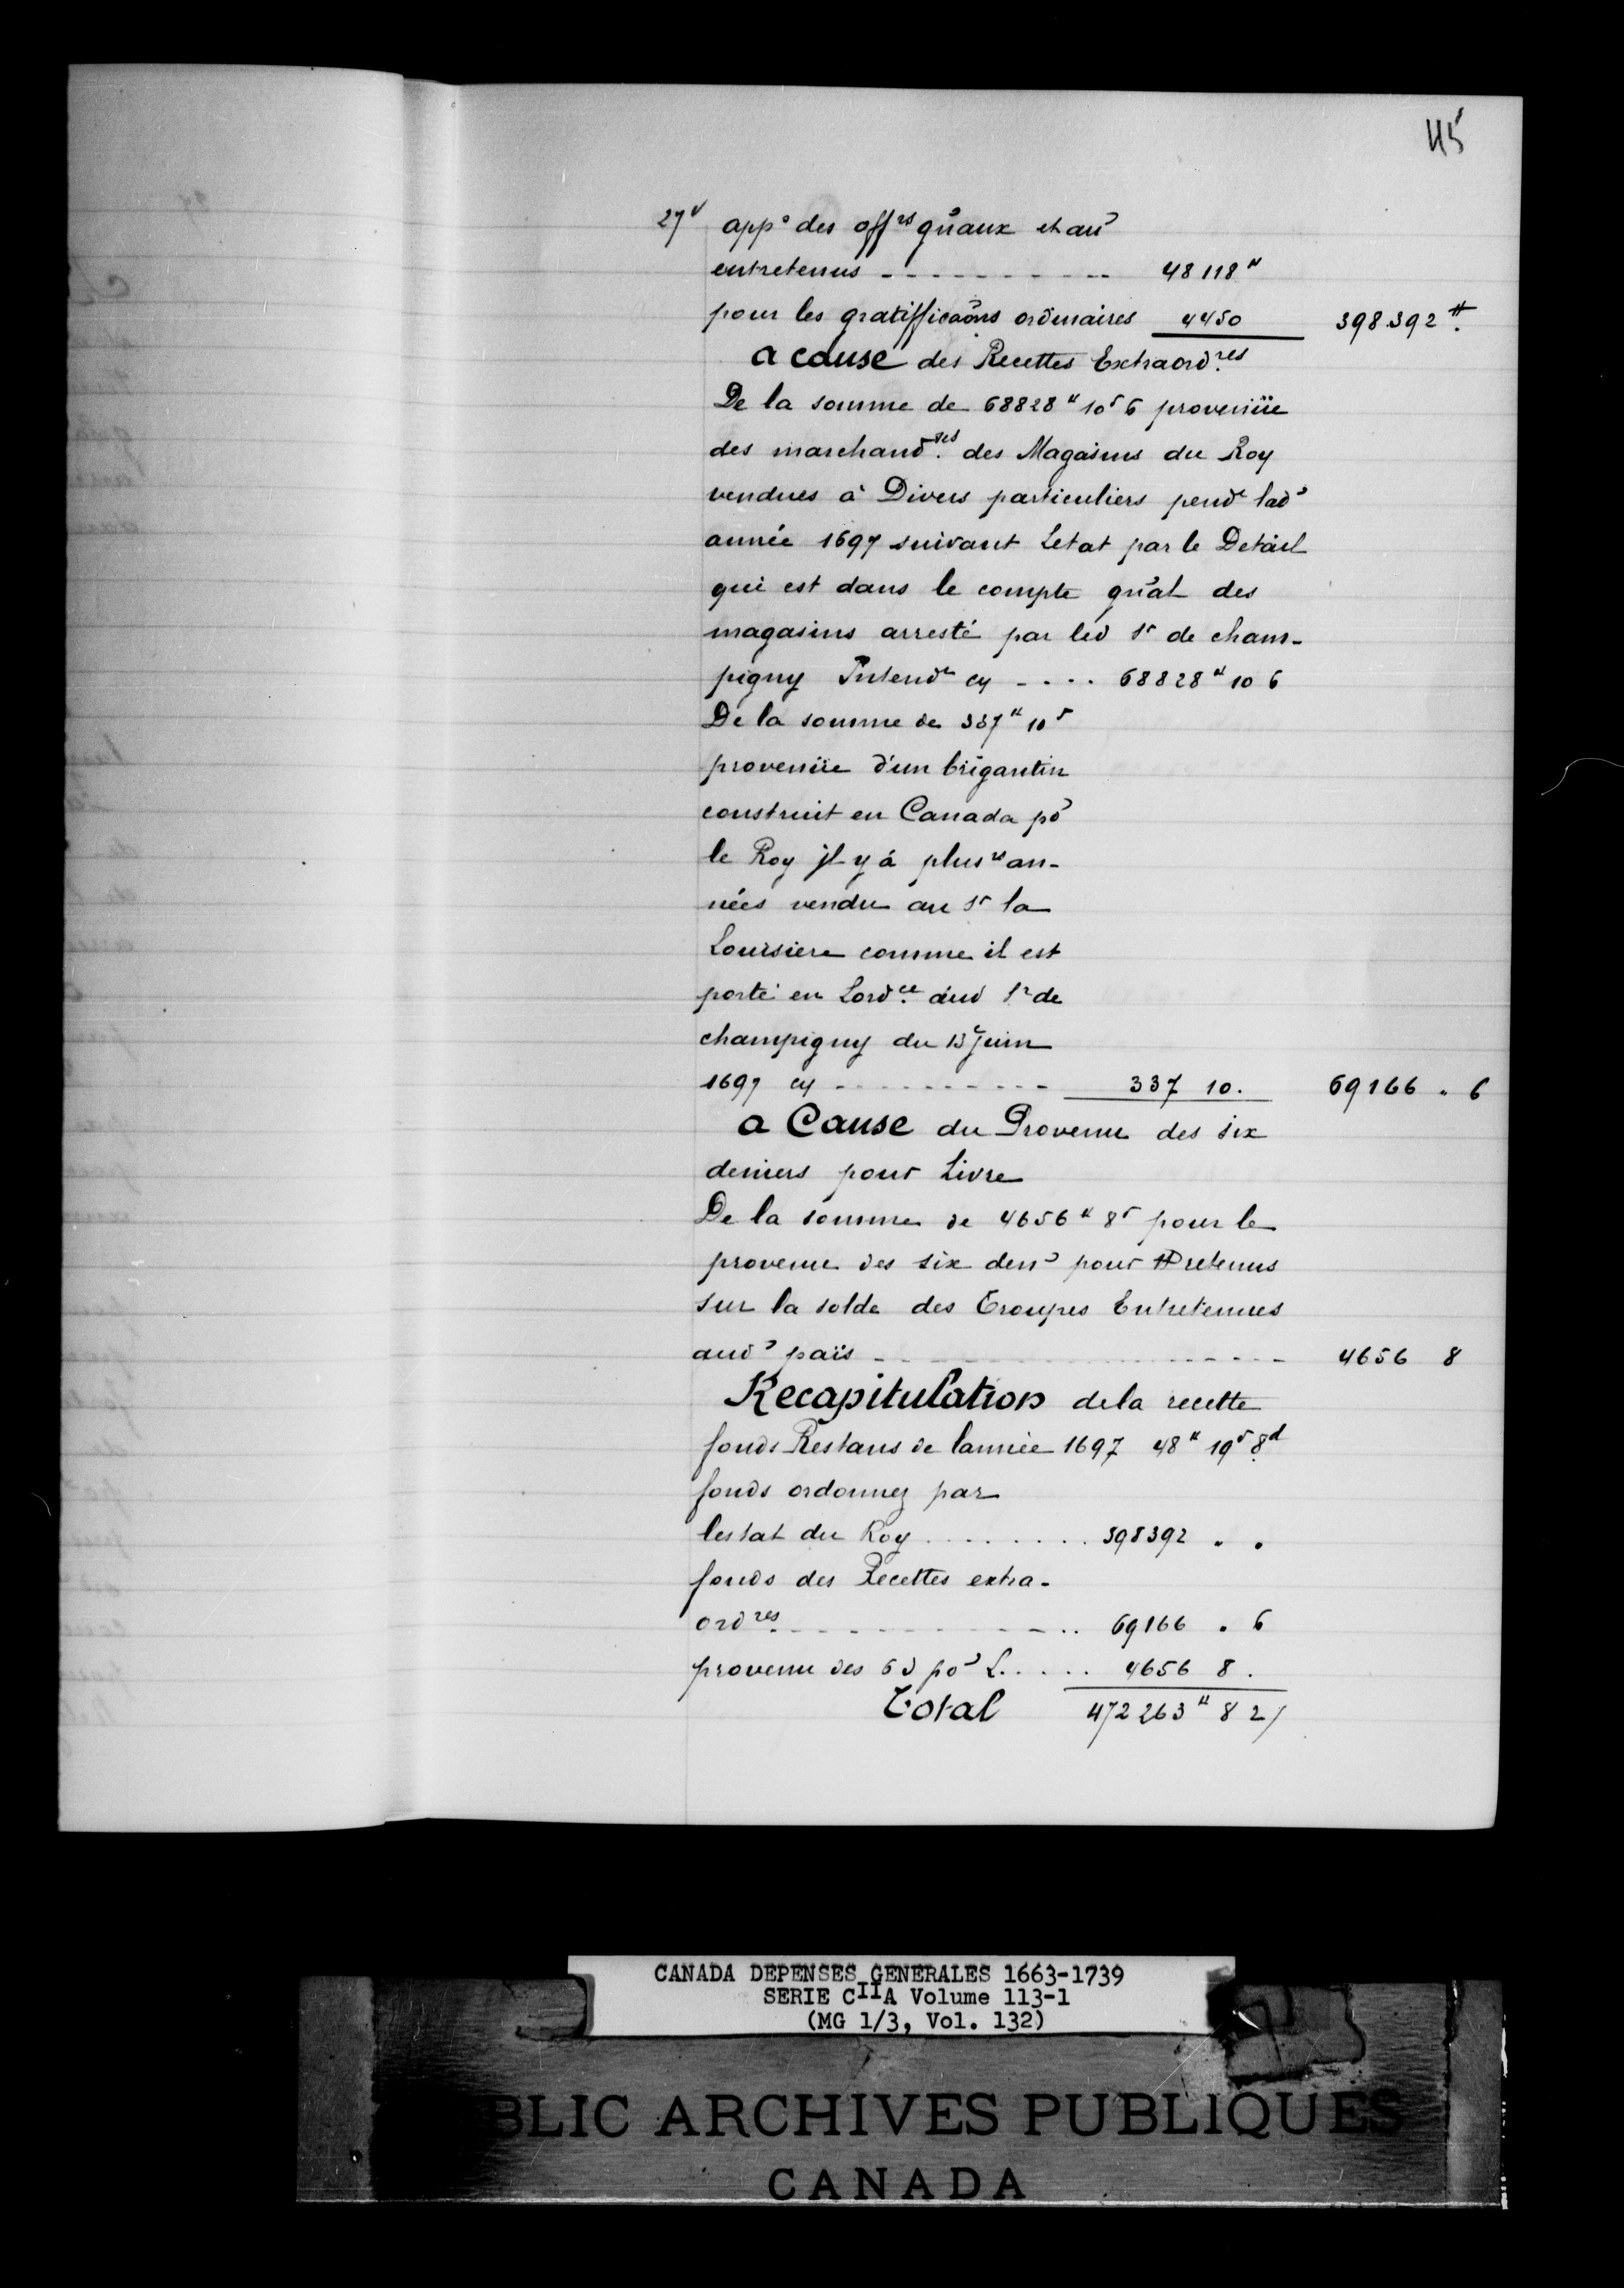 45
27v appo des offrs gñaux et auẽ
entretenus - - - - - - - - - - 48118#
pour les gratifficãons ordinaires 4450 398392#.
a cause des Recettes Extraord.res
De la somme de 68828# 10s 6 provenüe
des marchand.ses des Magasins du Roy
vendues à Divers particuliers pendt lad'
année 1697 suivant Letat par le Detail
qui est dans le compte gñal des
magasins arresté par led Sr de cham-
pigny Intendt cy - - - - 68828# 10 6
De la somme de 337# 10s
provenüe d'un brigantin
construit en Canada po'
le Roy jl y à plusrs an-
nées vendu au Sr la
Louisiere comme il est
porté en Lord.ce dud Sr de
champigny du 13e Juin
1697 cy - - - - - - - - - - 337 10. 69166 . 6
a Cause du Provenu des six
deniers pour Livre
De la somme de 4656# 8s pour le
provenu des six den' pour # retenus
sur la solde des Troupes Entretenues
aud' païs - - - - - - - - - - - - - - 4656 8
Recapitulation de la recette
fonds Restans de lannée 1697 48# 19s 8d
fonds ordonnez par
lestat du Roy . . . . . . . . 398392 . .
fonds des Recettes extra-
ord.res - - - - - - - - - - . . 69166 . 6
provenu des 6 d po' L. . . . . 4656 8 .
Total 472263# 8 2/
CANADA DEPENSES GENERALES 1663-1739
SERIE CIIA Volume 113-1
(MG 1/3, Vol. 132)
BLIC ARCHIVES PUBLIQUES
CANADA